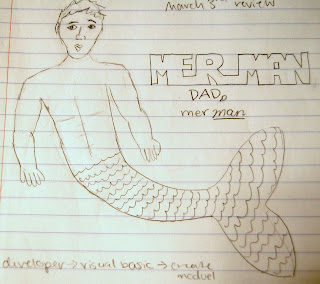 march 3rd review
MERMAN
DAD,
merman
developer → visual basic → create
moduel